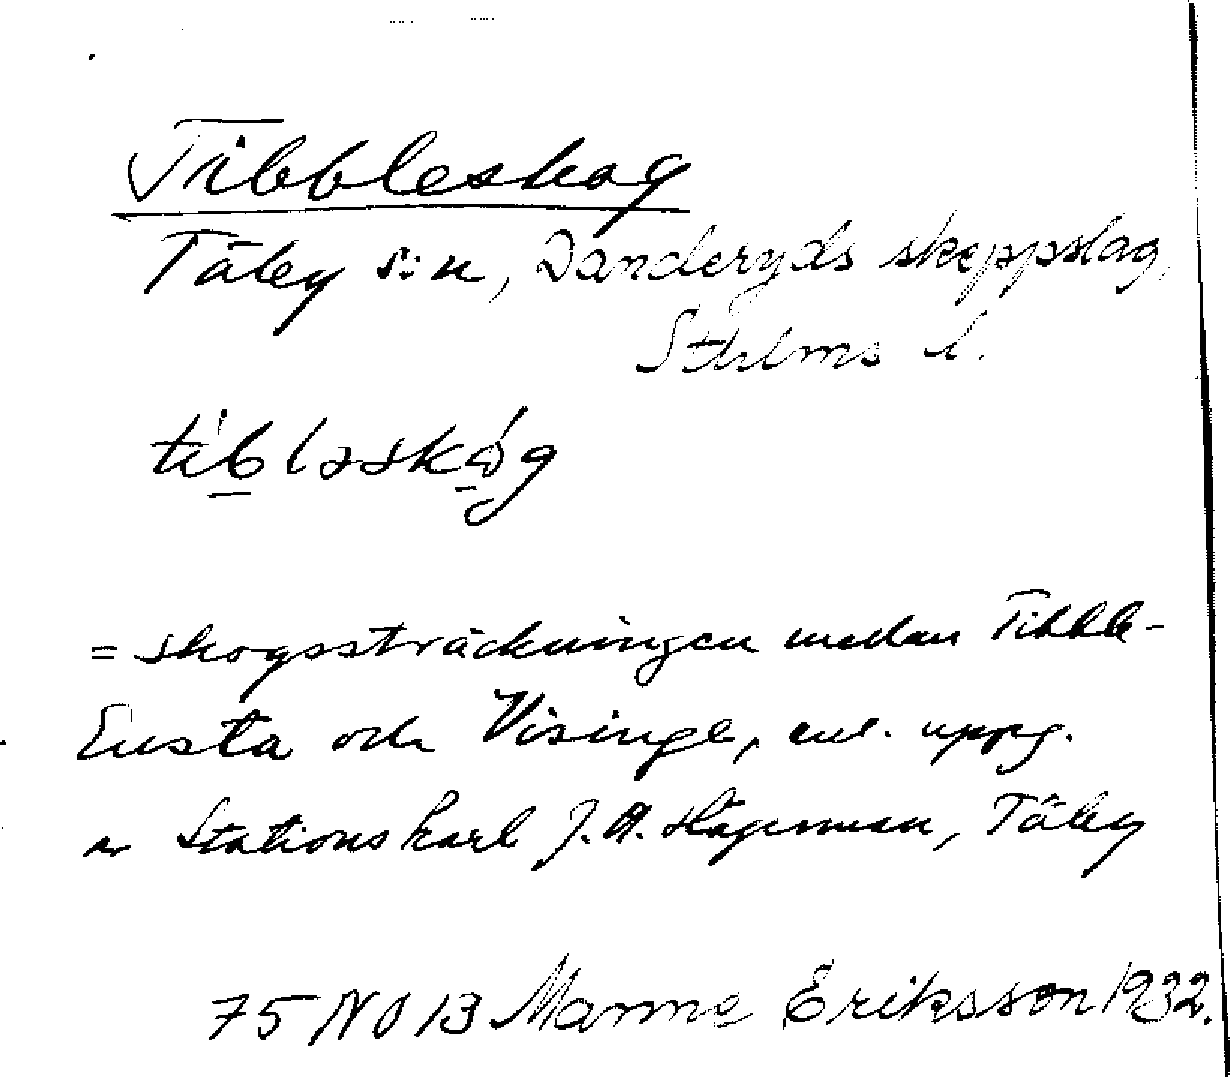 Tibbleskog
Täby s:n, Danderyds skeppslag,
Sthlms l.
tibləskóg
= skogssträckningen mellan Tibble-
Ensta och Visinge, enl. uppg.
av Stationskarl J. A. Hageman, Täby
75 NO 13 Manne Eriksson 1932.